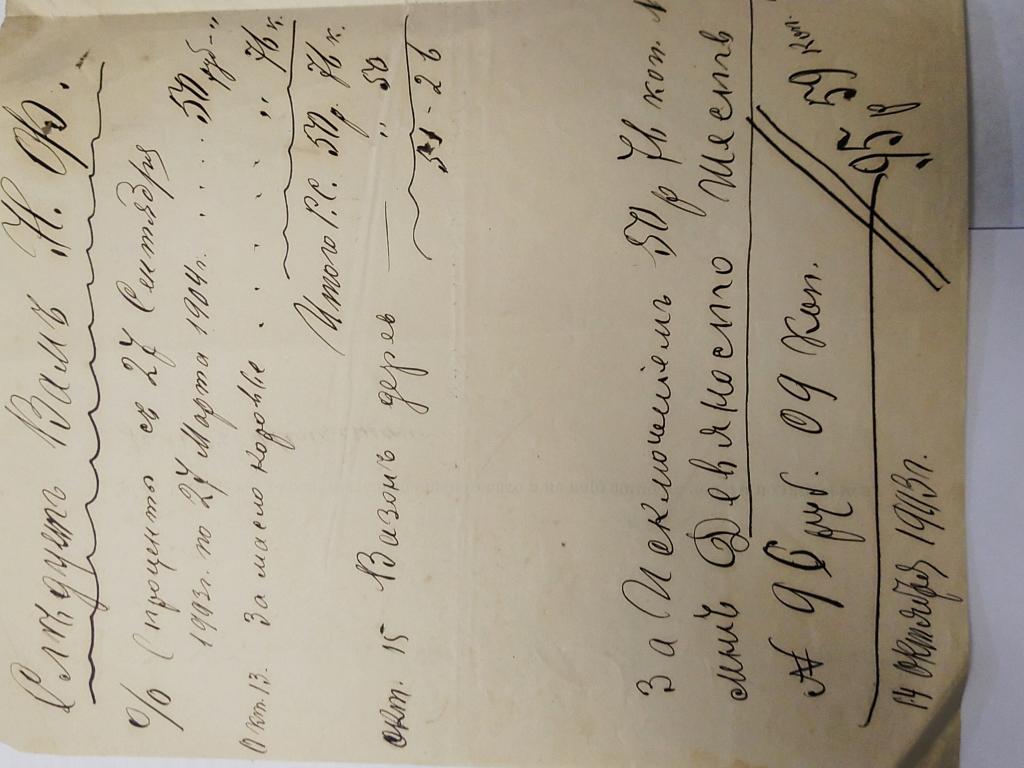 Слѣдуетъ Вамъ Н. Ф.
% (процентъ съ 27 Сентября
1903г. по 27 Марта 1904г. . . . . 50 руб "
Окт. 13. За масло коровье . . . . " 76 к.
Итого Р.С. 50р. 76 к.
окт. 15 Вазонъ дерев — " 50
51 - 26
За Исключеніемъ 50 р 76 коп
мнѣ Девяносто Шесть
№ 96 руб. 09 коп.
95 59 коп.
14 Октября 1903г.